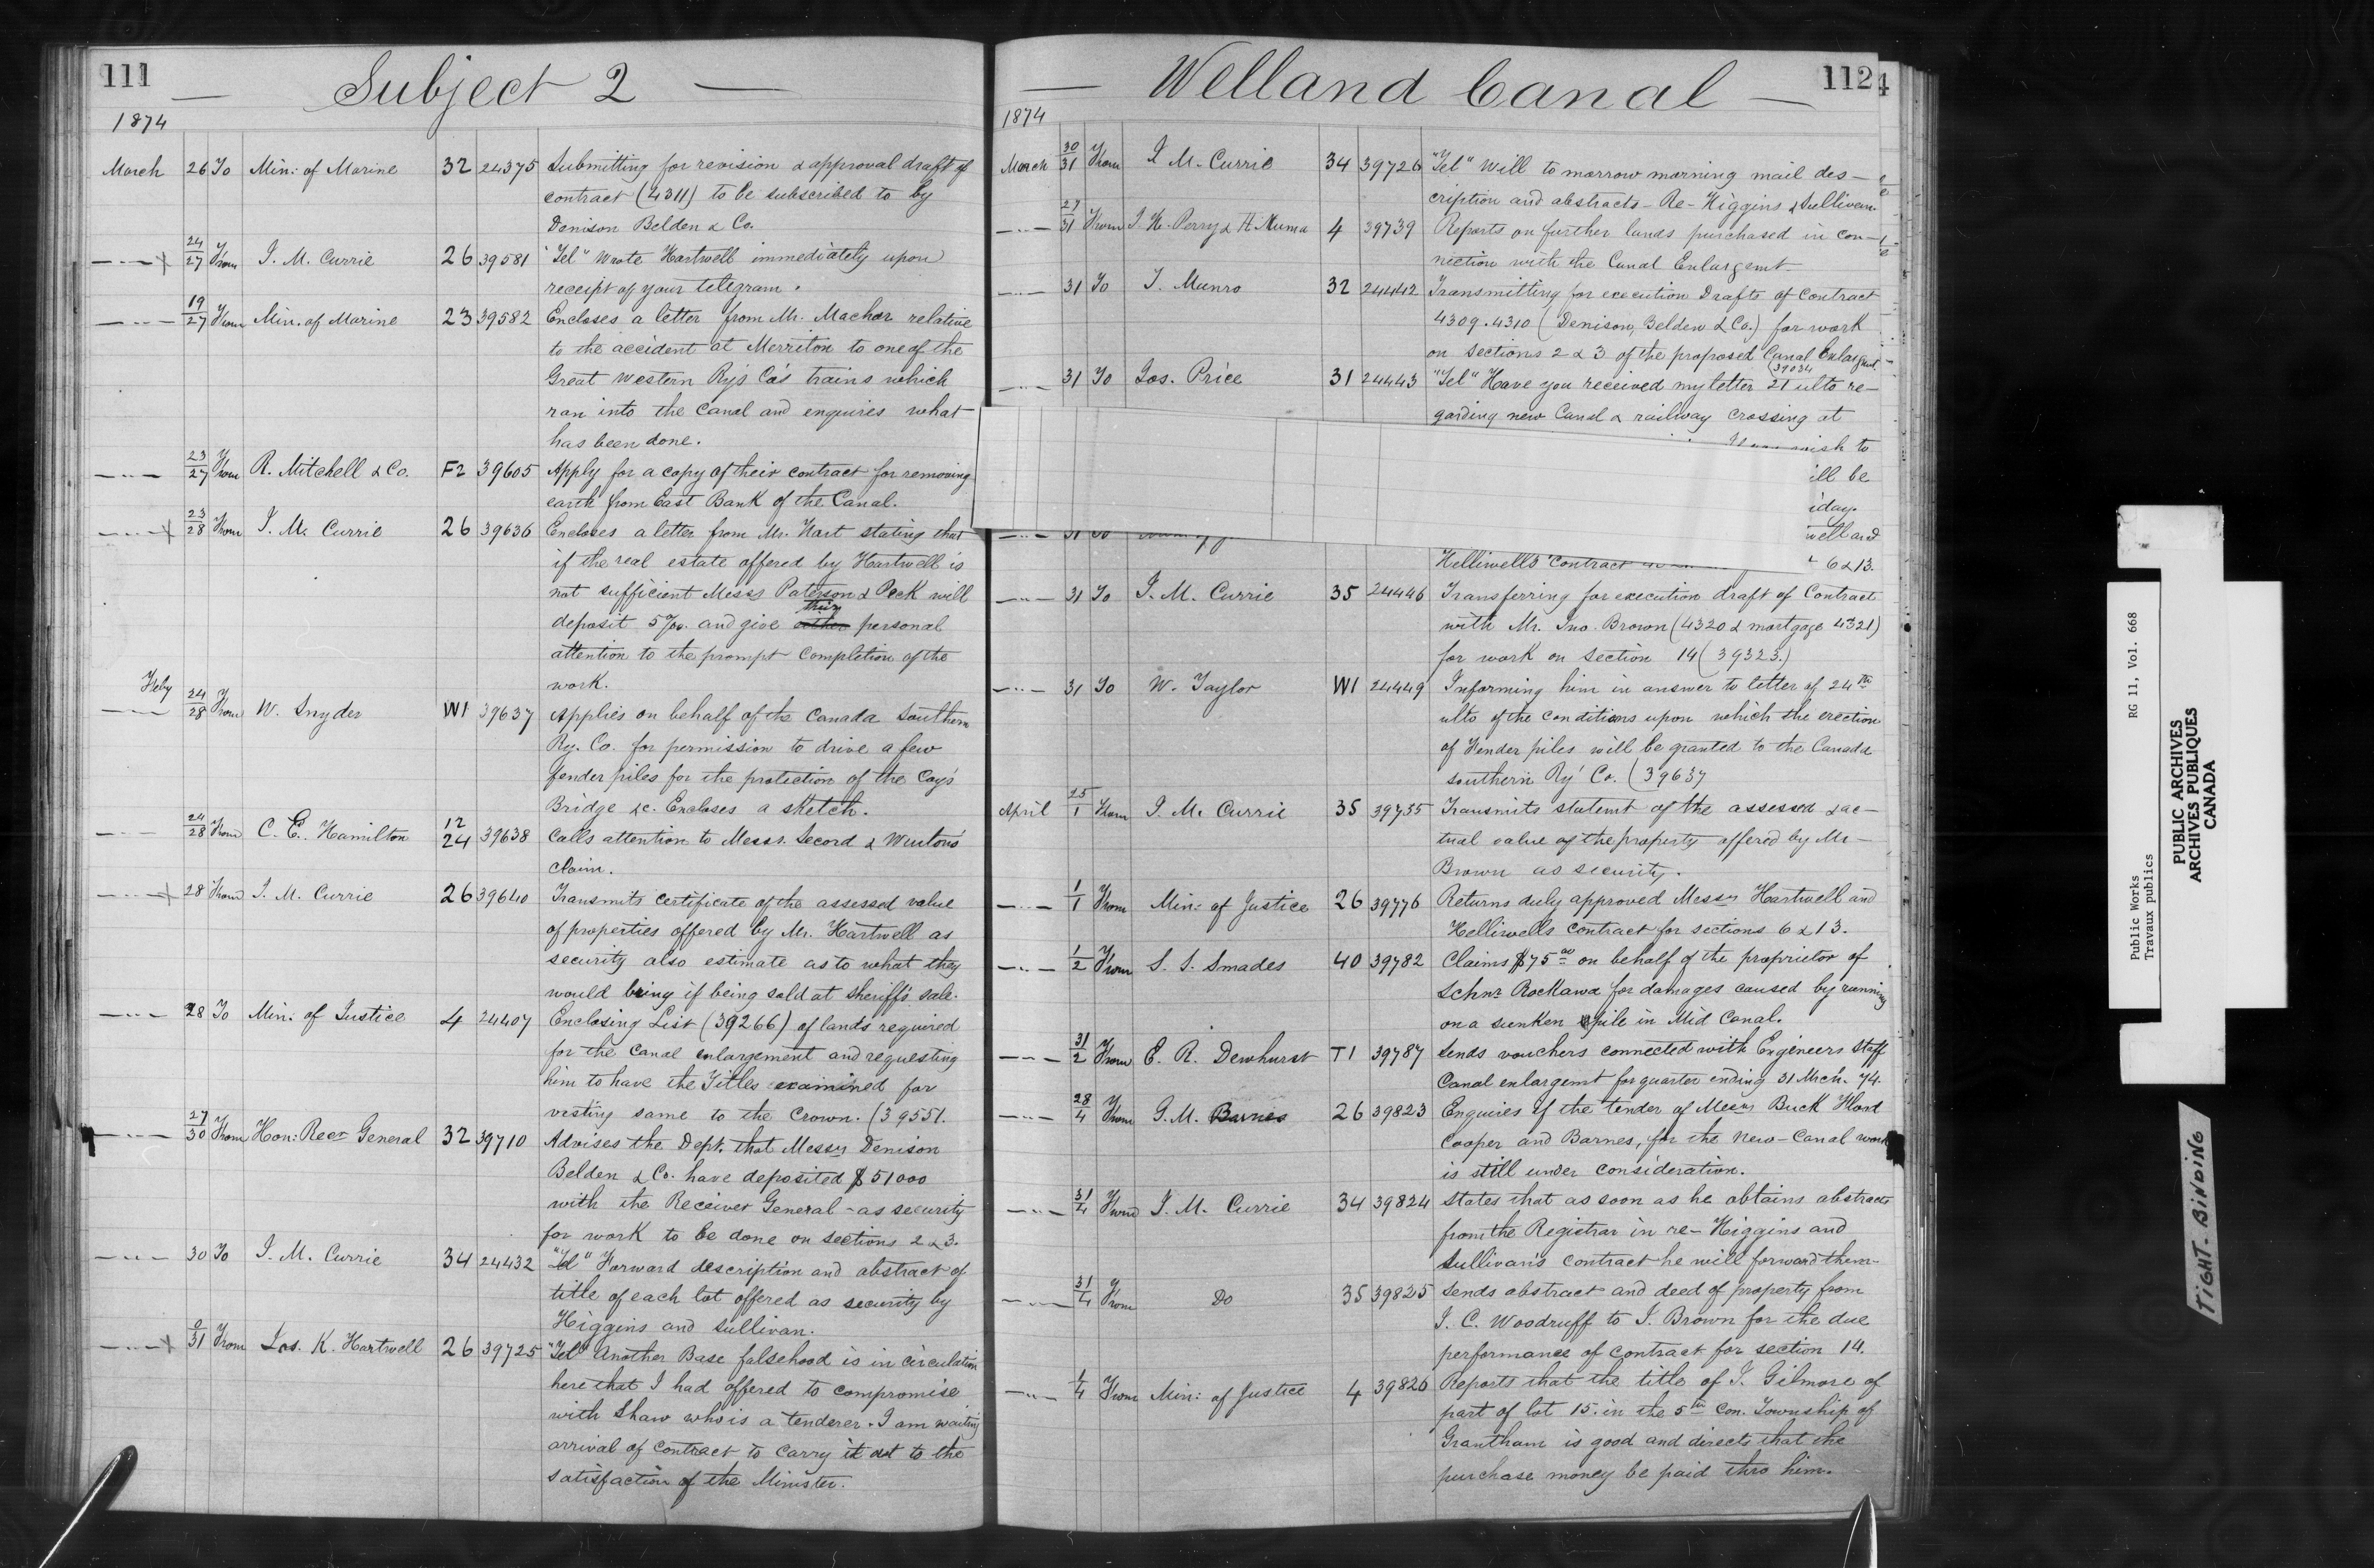 111
Subject 2
1874
March 26 To Min: of Marine 32 24375 Submitting for revision & approval draft of
contract (4311) to be subscribed to by
Denison Belden & Co.
24/27 From J. M. Currie 26 39581 "Tel" Wrote Hartwell immediately upon
receipt of your telegram.
19/27 From Min. of Marine 23 39582 Encloses a letter from Mr. Machar relative
to the accident at Merriton to one of the
Great Western Ry's Co's trains which
ran into the Canal and enquires what
has been done.
23/27 From R. Mitchell & Co. F2 39605 Apply for a copy of their contract for removing
earth from East Bank of the Canal.
23/28 From J. M. Currie 26 39636 Encloses a letter from Mr. Hart stating that
if the real estate offered by Hartwell is
not sufficient Messrs Paterson & Peck will
deposit 5 %. and give their personal
attention to the prompt completion of the
work.
Feby 24/28 From W. Snyder W1 39637 Applies on behalf of the Canada Southern
Ry. Co. for permission to drive a few
fender piles for the protection of the Coy's
Bridge &c. Encloses a sketch.
24/28 From C. E. Hamilton 12 24 39638 Calls attention to Messrs. Secord & Winton's
claim.
28 From J. M. Currie 26 39640 Transmits certificate of the assessed value
of properties offered by Mr. Hartwell as
security also estimate as to what they
would bring if being sold at Sheriff's sale.
28 To Min: of Justice 4 24407 Enclosing List (39266) of lands required
for the Canal enlargement and requesting
him to have the Titles examined for
vesting same to the Crown. (39551.
27/30 From Hon: Recr General 32 39710 Advises the Dept. that Messrs Denison
Belden & Co. have deposited $51000
with the Receiver General - as security
for work to be done on sections 2 & 3.
30 To J. M. Currie 34 24432 "Tel" Forward description and abstract of
title of each lot offered as security by
Higgins and Sullivan.
31 From Jos. K. Hartwell 26 39725 "Tel" Another Base falsehood is in circulation
here that I had offered to compromise
with Shaw who is a tenderer. I am waiting
arrival of contract to carry it out to the
satisfaction of the Minister.
Welland Canal
112
4
1874
March 30/31 From J. M. Currie 34 39726 "Tel" Will to morrow morning mail des-
cription and abstracts - Re - Higgins & Sullivan
27/31 From J. H. Perry & H. Numa 4 39739 Reports on further lands purchased in con-
nection with the Canal Enlargemt
31 To T. Munro 32 24442 Transmitting for execution Drafts of Contract
4309. 4310 (Denison, Belden & Co.) for work
on sections 2 & 3 of the proposed Canal Enlargmt
31 To Jos. Price 31 24443 "Tel" Have you received my letter 21 ulto (39034 re-
garding new Canal & railway crossing at
wish to
ill be
iday.
well and
31 To
Helliwells contract 6 & 13.
31 To J. M. Currie 35 24446 Transferring for execution draft of Contract
with Mr. Jno. Brown (4320 & mortgage 4321)
for work on Section 14 (39323.)
31 To W. Taylor W1 24449 Informing him in answer to letter of 24th
ulto of the conditions upon which the erection
of Fender piles will be granted to the Canada
Southern Ry' Co. (39637
April 25/1 From J. M. Currie 35 39735 Transmits statemt of the assessed & ac-
tual value of the property offered by Mr-
Brown as security.
1/1 From Min: of Justice 26 39776 Returns duly approved Messrs Hartwell and
Helliwells contract for sections 6 & 13.
1/2 From S. S. Smades 40 39782 Claims $75 00 on behalf of the proprietor of
Schnr Rockawa for damages caused by running
on a sunken pile in Mid Canal.
31/2 From E. R. Dewhurst T1 39787 Sends vouchers connected with Engineers Staff
Canal enlargemt for quarter ending 31 Mrch. 74.
28/4 From G. M. Barnes 26 39823 Enquires if the tender of Messrs Buck Hoard
Cooper and Barnes, for the New-Canal work
is still under consideration.
31/4 From J. M. Currie 34 39824 States that as soon as he obtains abstracts
from the Registrar in re - Higgins and
Sullivan's contract he will forward them.
31/4 From Do 35 39825 Sends abstract and deed of property from
J. C. Woodruff to J. Brown for the due
performance of contract for section 14.
1/4 From Min: of Justice 4 39826 Reports that the title of J. Gilmore of
part of lot 15. in the 5th Con. Township of
Grantham is good and directs that the
purchase money be paid thro him.
Public Works
Travaux publics
RG 11, Vol. 668
PUBLIC ARCHIVES
ARCHIVES PUBLIQUES
CANADA
TIGHT BINDING